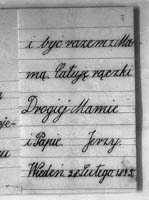 3
i być razem z Ma-
mą. Całuję rączki
Drogiej Mamie
i Papie. Jerzy.
Wiedeń Lutego